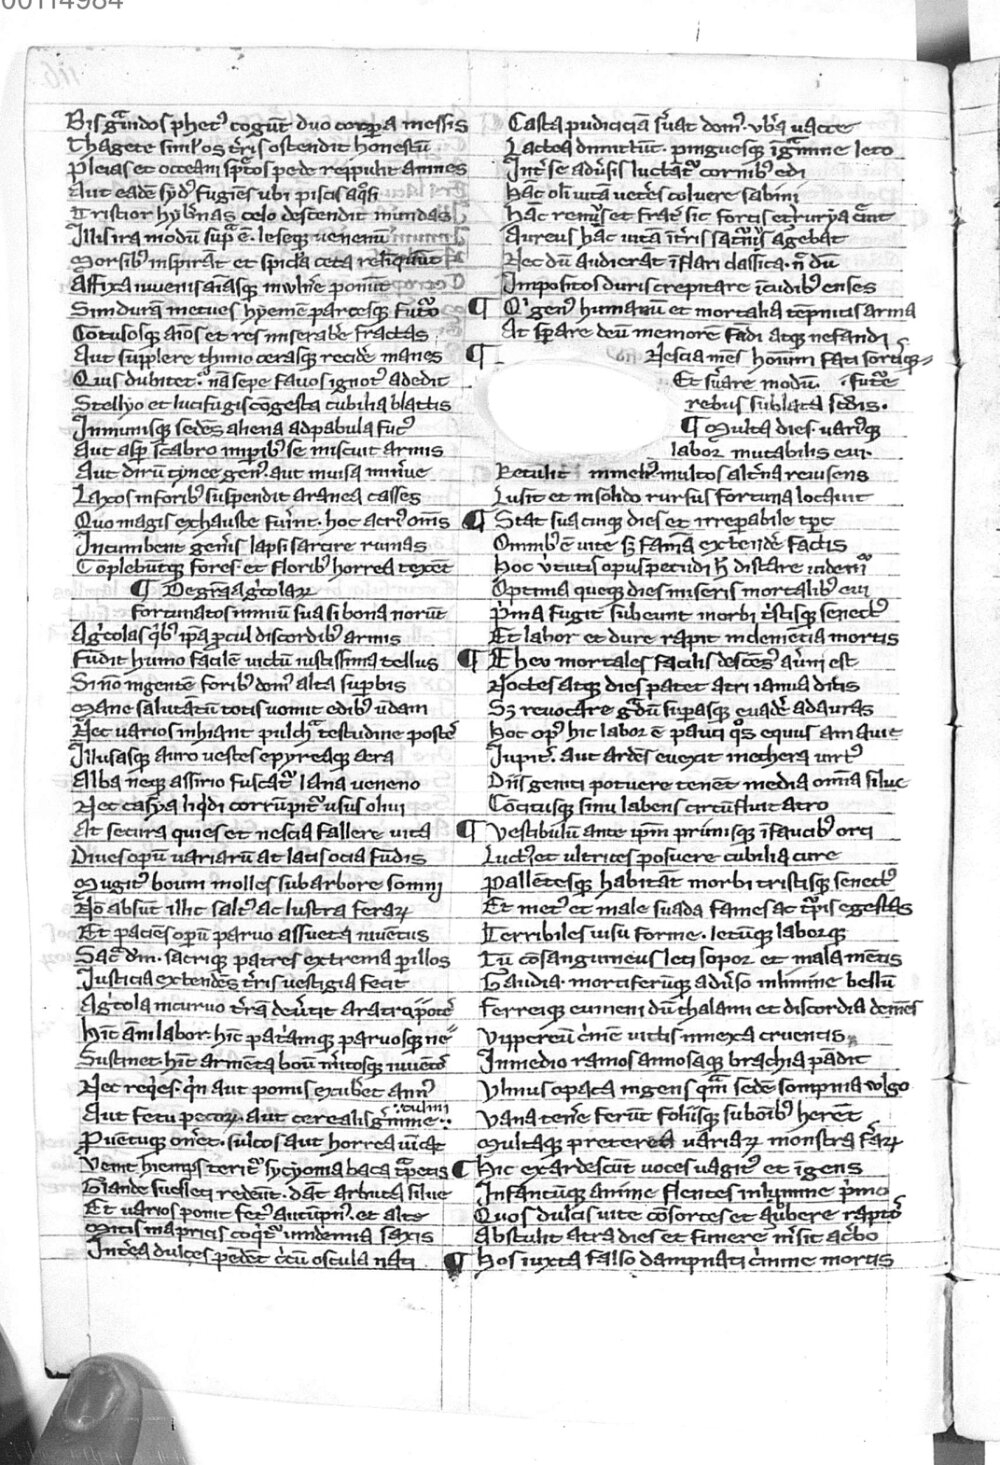 00114984
116
Bis gͣuidos phetꝰ cogūt duo corpora messis
Thagete simlʼ os tr̄is ostendit honestū
Pleias et occeani sp̄tos pede reppulit amnes
Aut eadē sydꝰ fugiēs ubi piscis aqͦsi
Tristior hybʼnas celo descendit in undas
Illis ira modū supͣ ē. leseqꝫ uenenū
Morsibꝰ inspirāt et spicla ceca reliquūt
Affixa in uenis aīasqꝫ in vulnʼe ponūt
Sin durā metues hyemē parcesqꝫ futͦo
Cōtusosqꝫ aīos et res miserabʼe fractas
Aut supplere thimo cerasqꝫ recidʼe inanes
Quis dubitet. nā sepe fauos ignotꝰ adedit
Stellyo et lucifugis cōgesta cubilia blattis
Inmunisqꝫ sedēs aliena ad pabula fucꝰ
Aut aspʼ scabro inparibꝰ se miscuit armis
Aut dirū tynee genꝰ. aut inuisa minʼue
Laxos in foribꝰ suspendit aranea casses
Quo magis exhauste fuʼint. hoc acriꝰ om̄s
Incumbent genʼis lapsi sarcire ruinas
Cōplebūtqꝫ fores. et floribꝰ horrea texēt
¶ De gͥa agͥcolaꝝ
Fortunatos nimiū sua si bona norūt
Agͥcolas qͥbꝰ ipa pͦcul discordibꝰ armis
Fūdit humo facilē uictū iustissima tellus
Si nō ingentē foribꝰ domꝰ alta supbis
Mane salutātū totis uomit edibꝰ ūdam
Nec varios inhiant pulchͣ testudine postes
Illusasqꝫ auro vestes epyreaqꝫ aera
Alba neqꝫ assirio fuscatʼ lana veneno
Nec casya liqͥdi corrūpitʼ vsus oliui
At secura quies et nescia fallere vita
Diues opū variarū at latis ocia fūdis
Mugitꝰ boum molles sub arbore somnj
Nō absūt illic saltꝰ ac lustra feraꝝ
Et paciēs opū parvo assueta iuuētus
Sacͣ dm̄. sacriqꝫ patres extrema p illos
Iusticia extendēs tr̄is vestigia fecit
Agͥcola incuruo tʼrā deuʼtit aratͦ
Hīc āni labor. hīc patͥamqꝫ paruosqꝫ ne⸗
Sustinet. hīc armēta boū mʼitosqꝫ iuuēcos
Nec reqͥes. qͥn aut pomis exubʼet annꝰ
Aut fetu pecoꝝ. aut cerealis gͣmine
culmi
Prouētuqꝫ onʼet. sulcos aut horrea vīcat
Venit hiemps teritʼ sycyonia baca tͣpetis
Glande sues leti redeūt. dāt arbuta silue
Et varios ponit fetꝰ autūpnꝰ. et alte
Mitis in apricis coqͥtʼ uindemia saxis
Intʼea dulces pēdēt cͥcū oscula nati
¶ Casta pudiciciā sʼuat domꝰ. vbʼa uacce
Lactea dimittūt. pinguesqꝫ ī gͣmine leto
Intʼ se aduʼsis luctātʼ cornibꝰ edi
Hāc oli uitā vetʼes coluere sabini
Hāc remꝰ et frat̄ sic fortis etruria cͥuit
Aureus hāc uitā ī tʼris saturnꝰ agebat
Nec dū audierāt īflari classica. nͨ dū
Impositos duris crepitare īcudibꝰ enses
¶ Qͥ genꝰ humanū et mortalia tēpnitis arma
At sperare deū memorē fādi atqꝫ nefandi
¶ Nescia mēs hoīm fati sortisqꝫ⸗
Et sʼuare modū. futʼe
rebus sublata sedis.
¶ Multa dies. variꝰqꝫ
labor mutabilis eui.
Retulit in meliꝰ multos altʼna reuisens
Lusit et in solido rursus fortuna locauit
¶ Stat sua cuiqꝫ dies et irreparabile tp̄s
Omnibꝰ ē vite sꝫ famā extendʼe factis
Hoc vʼtutis opus
Optima queqꝫ dies miseris mortalibꝰ eui
Pʼma fugit subeunt morbi tʼistisqꝫ senectꝰ
Et labor et dure rapit inclemētia mortis
¶ Eheu mortales facilis descēsꝰ auʼni est
Noctes atqꝫ dies patet atri ianua ditis
Sꝫ revocare gͣdū superasqꝫ euadʼe ad auras
Hoc opꝰ hic labor ē pauci qͦs equus amauit
Iupitʼ. aut ardēs euexit in ethera virtꝰ
Diis geniti potuere tenēt media om̄ia silue
Cōcitusqꝫ sinu labens circūfluit atro
¶ Vestibulū ante ipm̄ primisqꝫ ī faucibꝰ orci
Luctꝰ et ultrices posuere cubilia cure
Pallētesqꝫ habitāt morbi tristisqꝫ senectꝰ
Et metꝰ et male suada fames ac tͥpis egestas
Terribiles visu forme. letūqꝫ laborqꝫ
Tū cōsanguineus leti sopor et mala mētis
Gaudia. mortiferūqꝫ aduʼso in limine bellū
Ferreiqꝫ eumeni dū thalami et discordia demēs
Vippereū cͥnē vittis innexa cruentis
In medio ramos annosaqꝫ brachia pādit
Vlmus opaca ingens qͣm sedē sompnia vlgo
Vana tenēe ferūt foliisqꝫ sub oībꝰ herēt
Multaqꝫ preterea variaꝝ monstra fʼaꝝ
¶ Hic exardescūt voces vagitꝰ et īgens
Infantūqꝫ anime flentes in lymine pʼmo
Quos dulcis vite cōsortes et aubʼere raptos
Abstulit atra dies et funere mʼsit acʼbo
¶ Hos iuxta falso dampnati cͥmine mortis